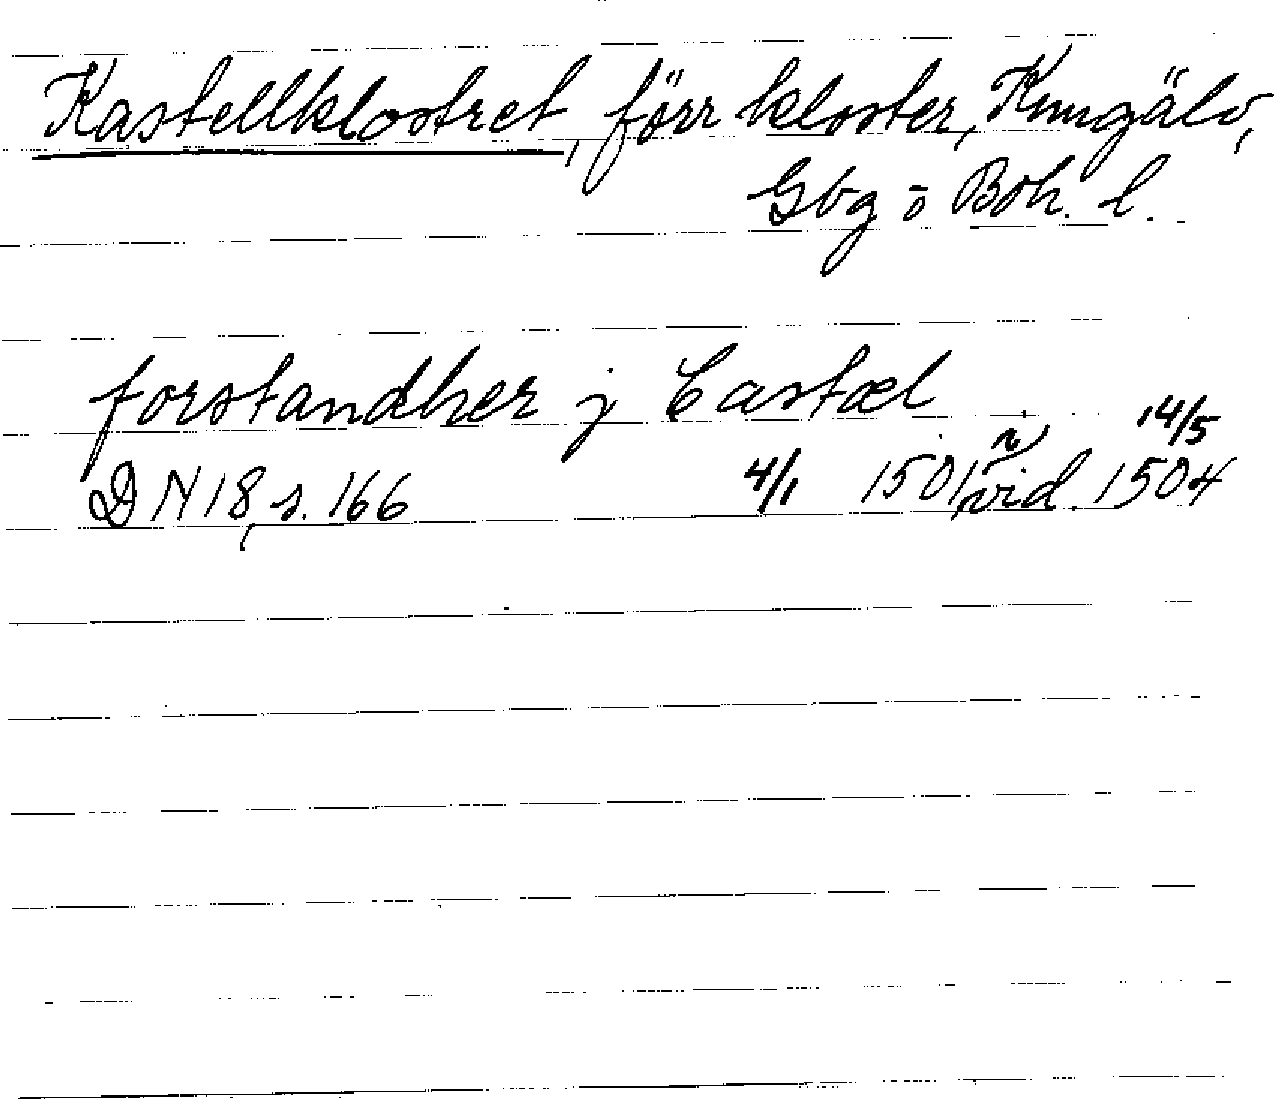 Kastellklostret, förr kloster, Kungälv,
Gbg o Boh. l.
forstandher j Castæl
DN 18, s. 166 4/1 1501 vid. 14/5 1504